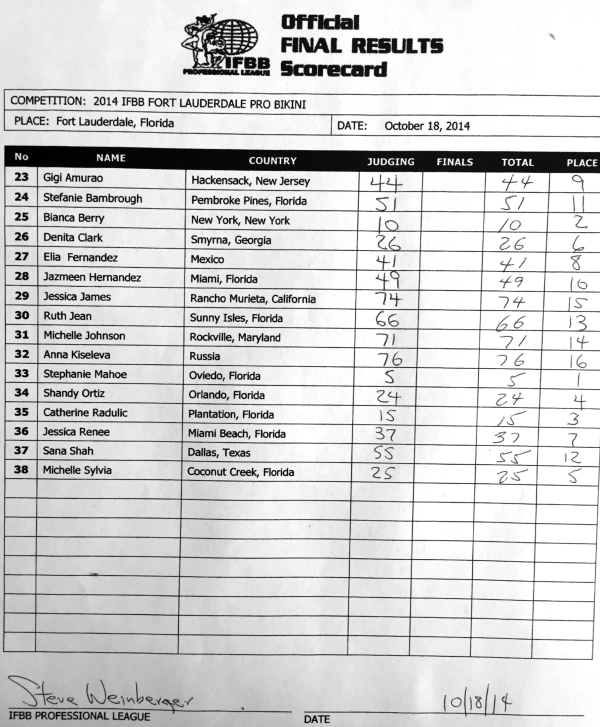 IFBB
PROFESSIONAL LEAGUE
Official
FINAL RESULTS
Scorecard
COMPETITION: 2014 IFBB FORT LAUDERDALE PRO BIKINI
PLACE: Fort Lauderdale, Florida DATE: October 18, 2014
No NAME COUNTRY JUDGING FINALS TOTAL PLACE
23 Gigi Amurao Hackensack, New Jersey 44 44 9
24 Stefanie Bambrough Pembroke Pines, Florida 51 51 11
25 Bianca Berry New York, New York 10 10 2
26 Denita Clark Smyrna, Georgia 26 26 6
27 Elia Fernandez Mexico 41 41 8
28 Jazmeen Hernandez Miami, Florida 49 49 10
29 Jessica James Rancho Murieta, California 74 74 15
30 Ruth Jean Sunny Isles, Florida 66 66 13
31 Michelle Johnson Rockville, Maryland 71 71 14
32 Anna Kiseleva Russia 76 76 16
33 Stephanie Mahoe Oviedo, Florida 5 5 1
34 Shandy Ortiz Orlando, Florida 24 24 4
35 Catherine Radulic Plantation, Florida 15 15 3
36 Jessica Renee Miami Beach, Florida 37 37 7
37 Sana Shah Dallas, Texas 55 55 12
38 Michelle Sylvia Coconut Creek, Florida 25 25 5
Steve Weinberger 10/18/14
IFBB PROFESSIONAL LEAGUE DATE